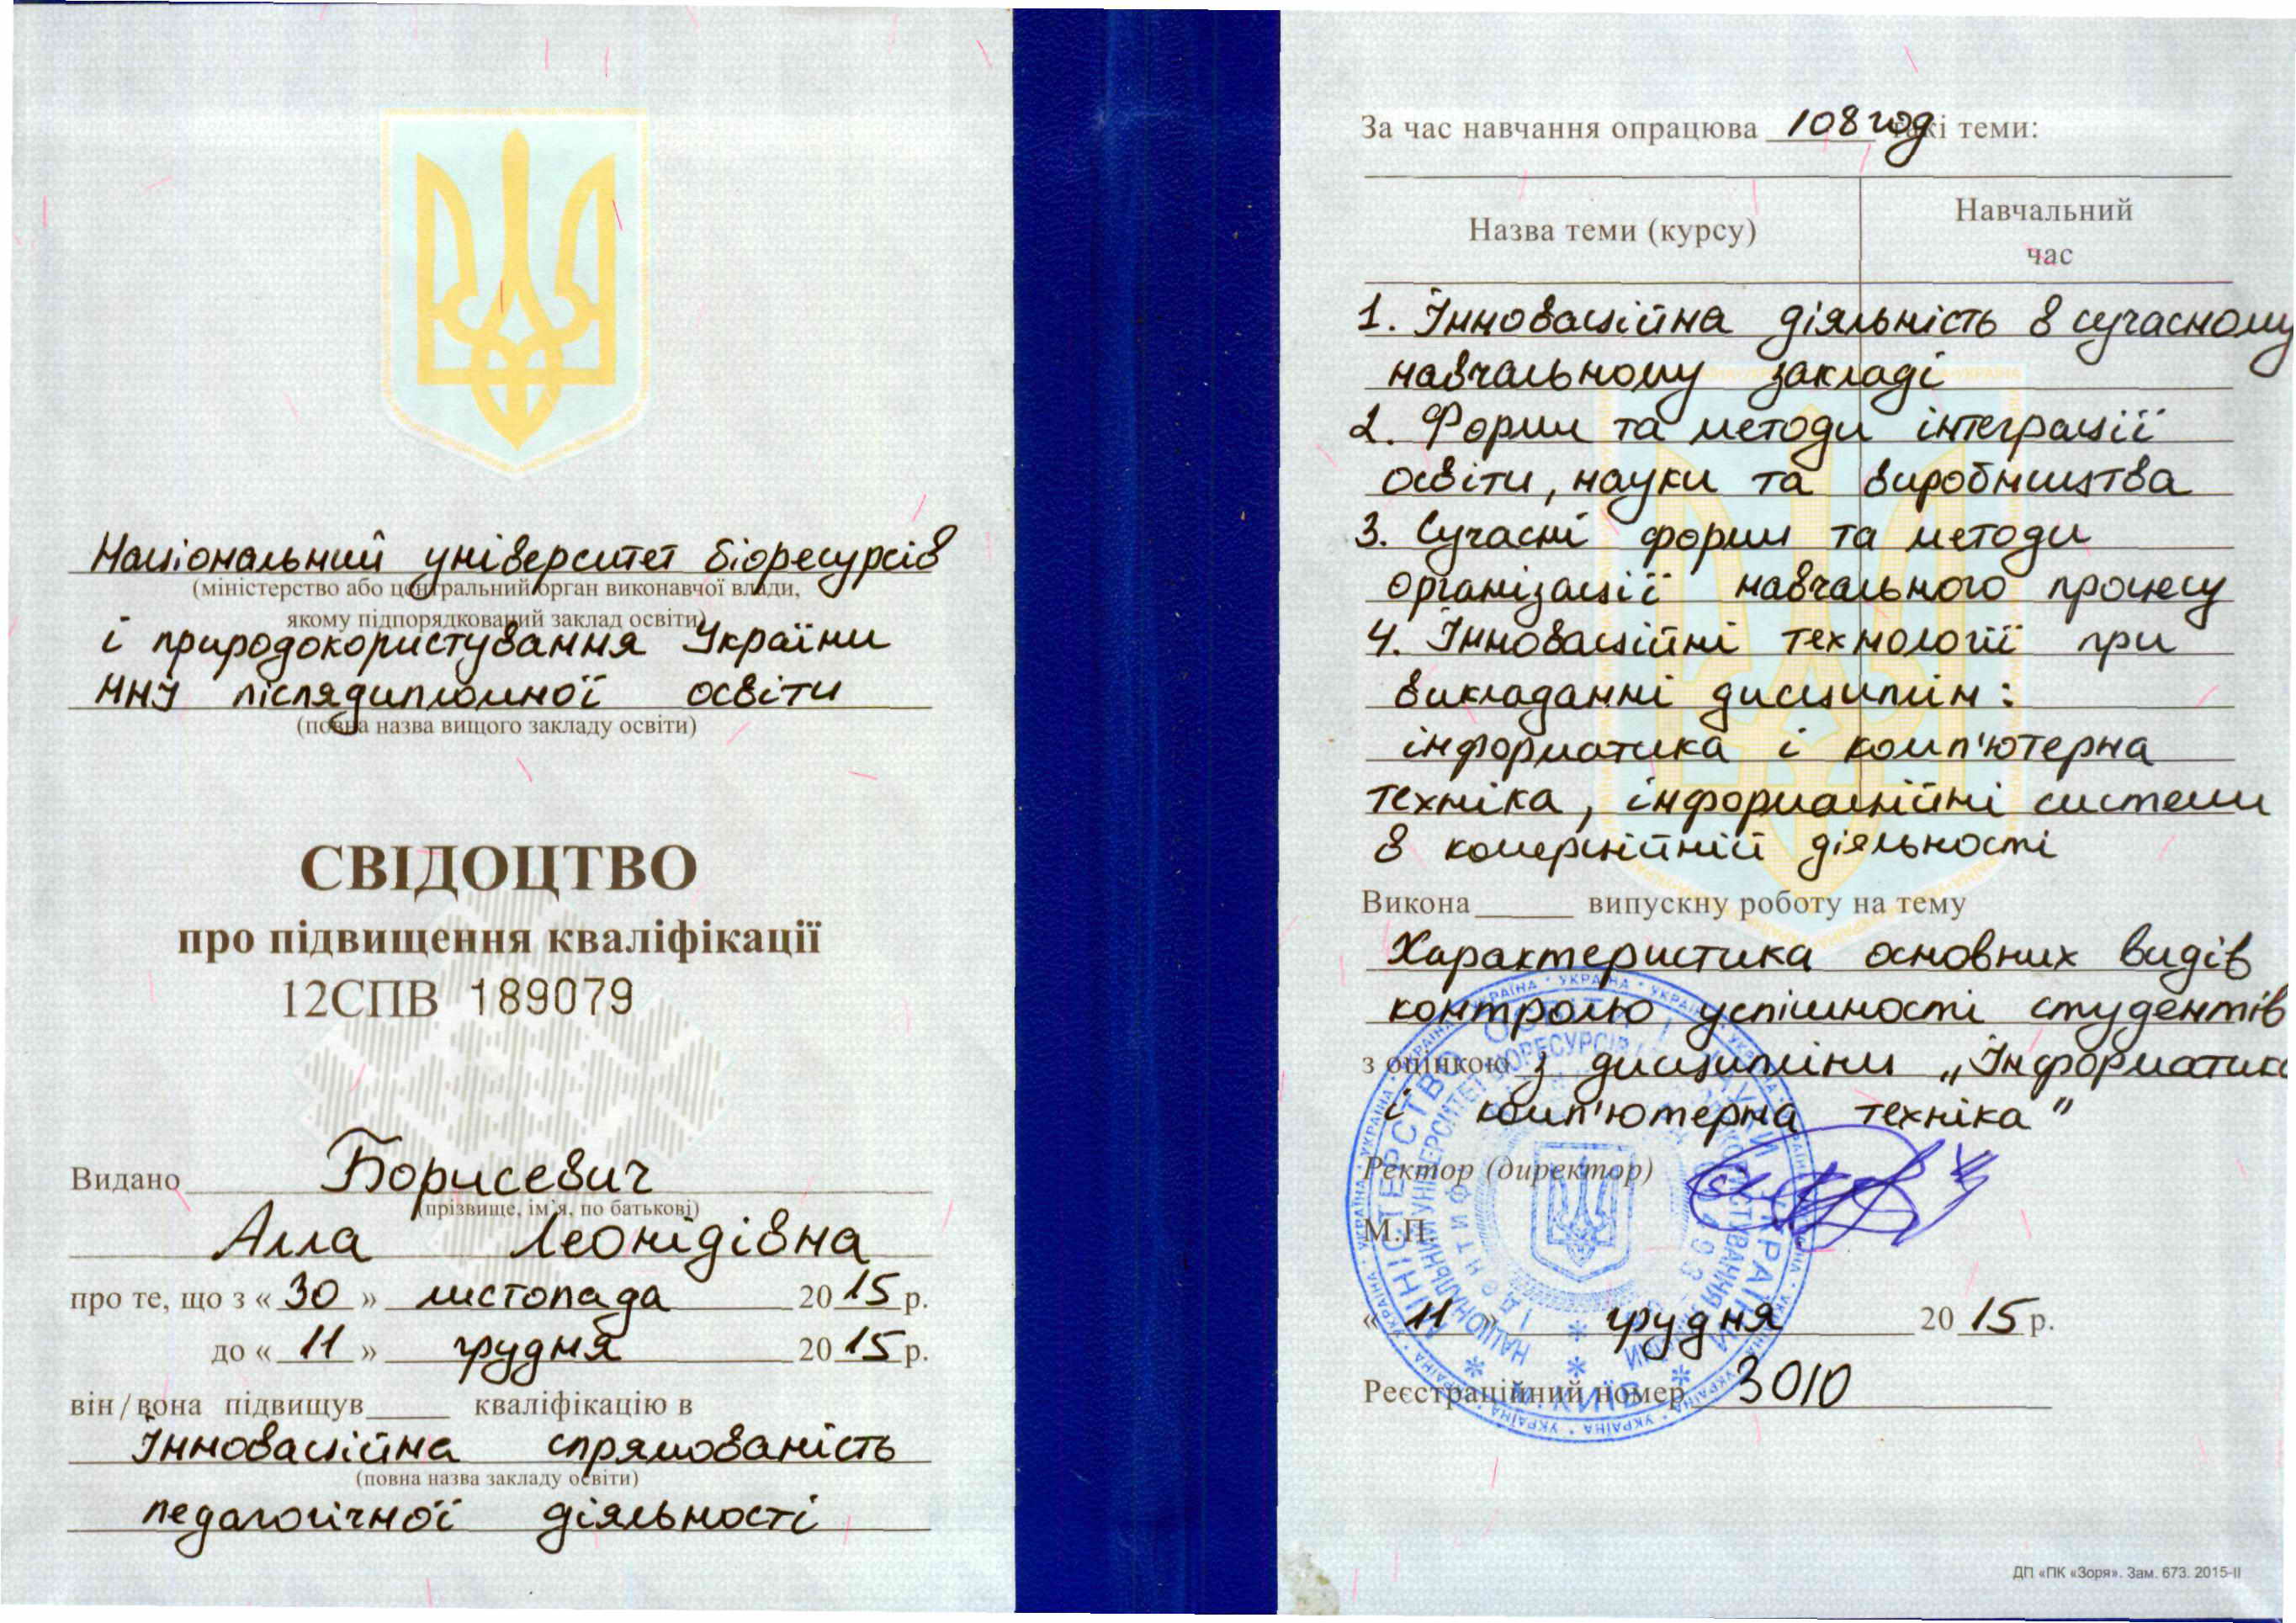 Національний університет біоресурсів
(міністерство або центральний орган виконавчої влади,
якому підпорядкований заклад освіти)
і природокористування України
ННІ післядипломної освіти
(повна назва вищого закладу освіти)
СВІДОЦТВО
про підвищення кваліфікації
12СПВ 189079
Видано Борисевич
(прізвище, ім'я, по батькові)
Алла Леонідівна
про те, що з « 30 » листопада 2015 р.
до « 11 » грудня 2015 р.
він / вона підвищув____ кваліфікацію в
Інноваційна спрямованість
(повна назва закладу освіти)
педагогічної діяльності
За час навчання опрацюва 108 год такі теми:
Назва теми (курсу)
Навчальний
час
1. Інноваційна діяльність в сучасному
навчальному закладі
2. Форми та методи інтеграції
освіти, науки та виробництва
3. Сучасні форми та методи
організації навчального процесу
4. Інноваційні технології при
викладанні дисциплін:
інформатика і комп'ютерна
техніка, інформаційні системи
в комерційній діяльності
Викона______ випускну роботу на тему
Характеристика основних видів
контролю успішності студентів
з оцінкою з дисципліни „Інформатика
і комп'ютерна техніка"
Ректор (директор)
М.П.
« 11 » грудня 2015 р.
Реєстраційний номер 3010
МІНІСТЕРСТВО ОСВІТИ І НАУКИ УКРАЇНИ
м. КИЇВ
ДП «ПК «Зоря». Зам. 673. 2015-II